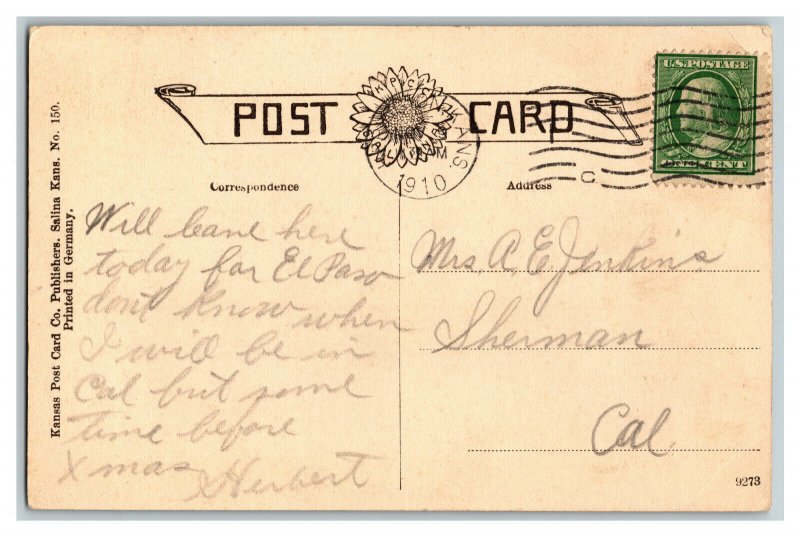 POST CARD
KPCC
U.S. POSTAGE
ONE CENT
KANS.
M
1910
C
Correspondence
Address
Kansas Post Card Co. Publishers. Salina Kans. No. 150.
Printed in Germany.
Will leave here
today for El Paso
dont know when
I will be in
Cal but some
time before
Xmas
Herbert
Mrs. A. E. Jenkins
Sherman
Cal.
9273